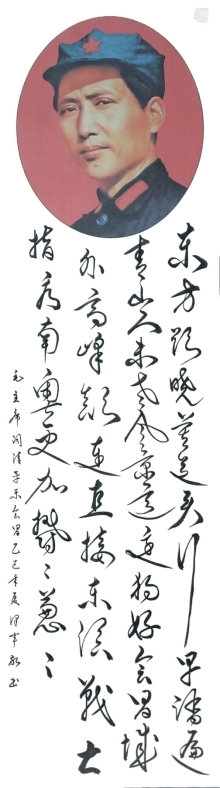 东方欲晓莫道君行早踏遍
青山人未老风景这边独好会昌城
外高峰颠连直接东溟戰士
指看南粵更加鬱〻葱〻
毛主席词清平乐会昌己巳年夏书